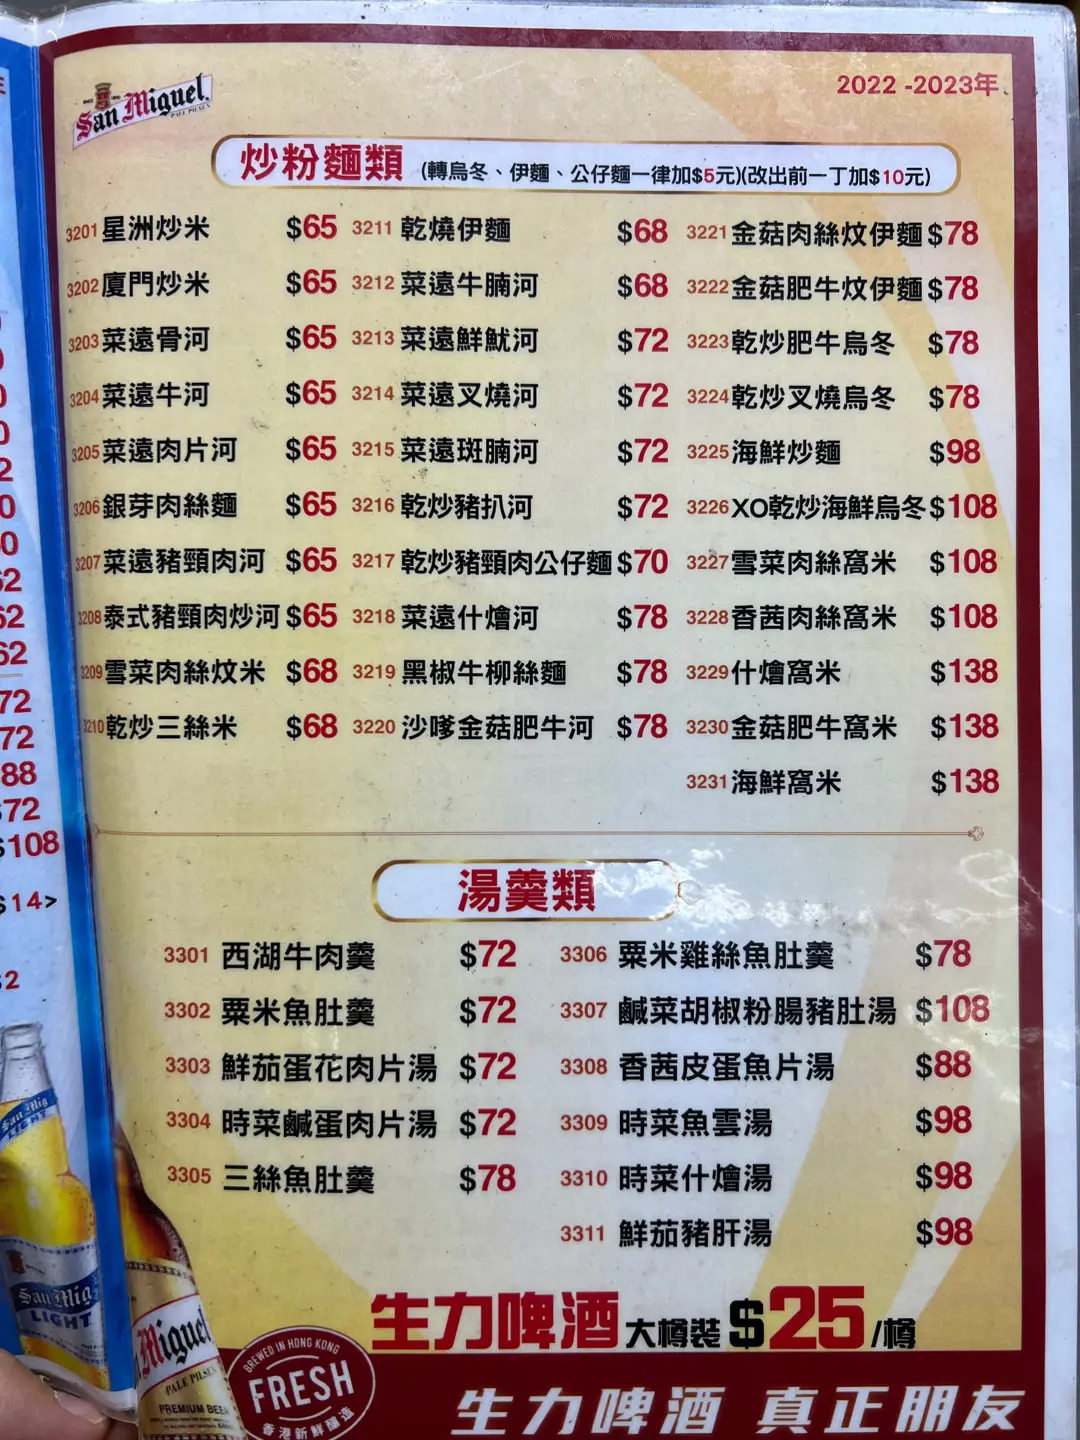 San Miguel
PALE PILSEN
2022 -2023年
炒粉麵類 (轉烏冬、伊麵、公仔麵一律加$5元)(改出前一丁加$10元)
3201 星洲炒米 $65 3211 乾燒伊麵 $68 3221 金菇肉絲炆伊麵 $78
3202 廈門炒米 $65 3212 菜遠牛腩河 $68 3222 金菇肥牛炆伊麵 $78
3203 菜遠骨河 $65 3213 菜遠鮮魷河 $72 3223 乾炒肥牛烏冬 $78
3204 菜遠牛河 $65 3214 菜遠叉燒河 $72 3224 乾炒叉燒烏冬 $78
3205 菜遠肉片河 $65 3215 菜遠斑腩河 $72 3225 海鮮炒麵 $98
3206 銀芽肉絲麵 $65 3216 乾炒豬扒河 $72 3226 XO乾炒海鮮烏冬 $108
3207 菜遠豬頸肉河 $65 3217 乾炒豬頸肉公仔麵 $70 3227 雪菜肉絲窩米 $108
3208 泰式豬頸肉炒河 $65 3218 菜遠什燴河 $78 3228 香茜肉絲窩米 $108
3209 雪菜肉絲炆米 $68 3219 黑椒牛柳絲麵 $78 3229 什燴窩米 $138
3210 乾炒三絲米 $68 3220 沙嗲金菇肥牛河 $78 3230 金菇肥牛窩米 $138
3231 海鮮窩米 $138
湯羹類
3301 西湖牛肉羹 $72 3306 粟米雞絲魚肚羹 $78
3302 粟米魚肚羹 $72 3307 鹹菜胡椒粉腸豬肚湯 $108
3303 鮮茄蛋花肉片湯 $72 3308 香茜皮蛋魚片湯 $88
3304 時菜鹹蛋肉片湯 $72 3309 時菜魚雲湯 $98
3305 三絲魚肚羹 $78 3310 時菜什燴湯 $98
3311 鮮茄豬肝湯 $98
生力啤酒 大樽裝 $25/樽
BREWED IN HONG KONG
FRESH
香港新鮮釀造
生力啤酒 真正朋友
72
72
88
$72
$108
$14>
$2
San Mig
LIGHT
San Mig
LIGHT
Miguel
PALE PILSEN
PREMIUM BEER